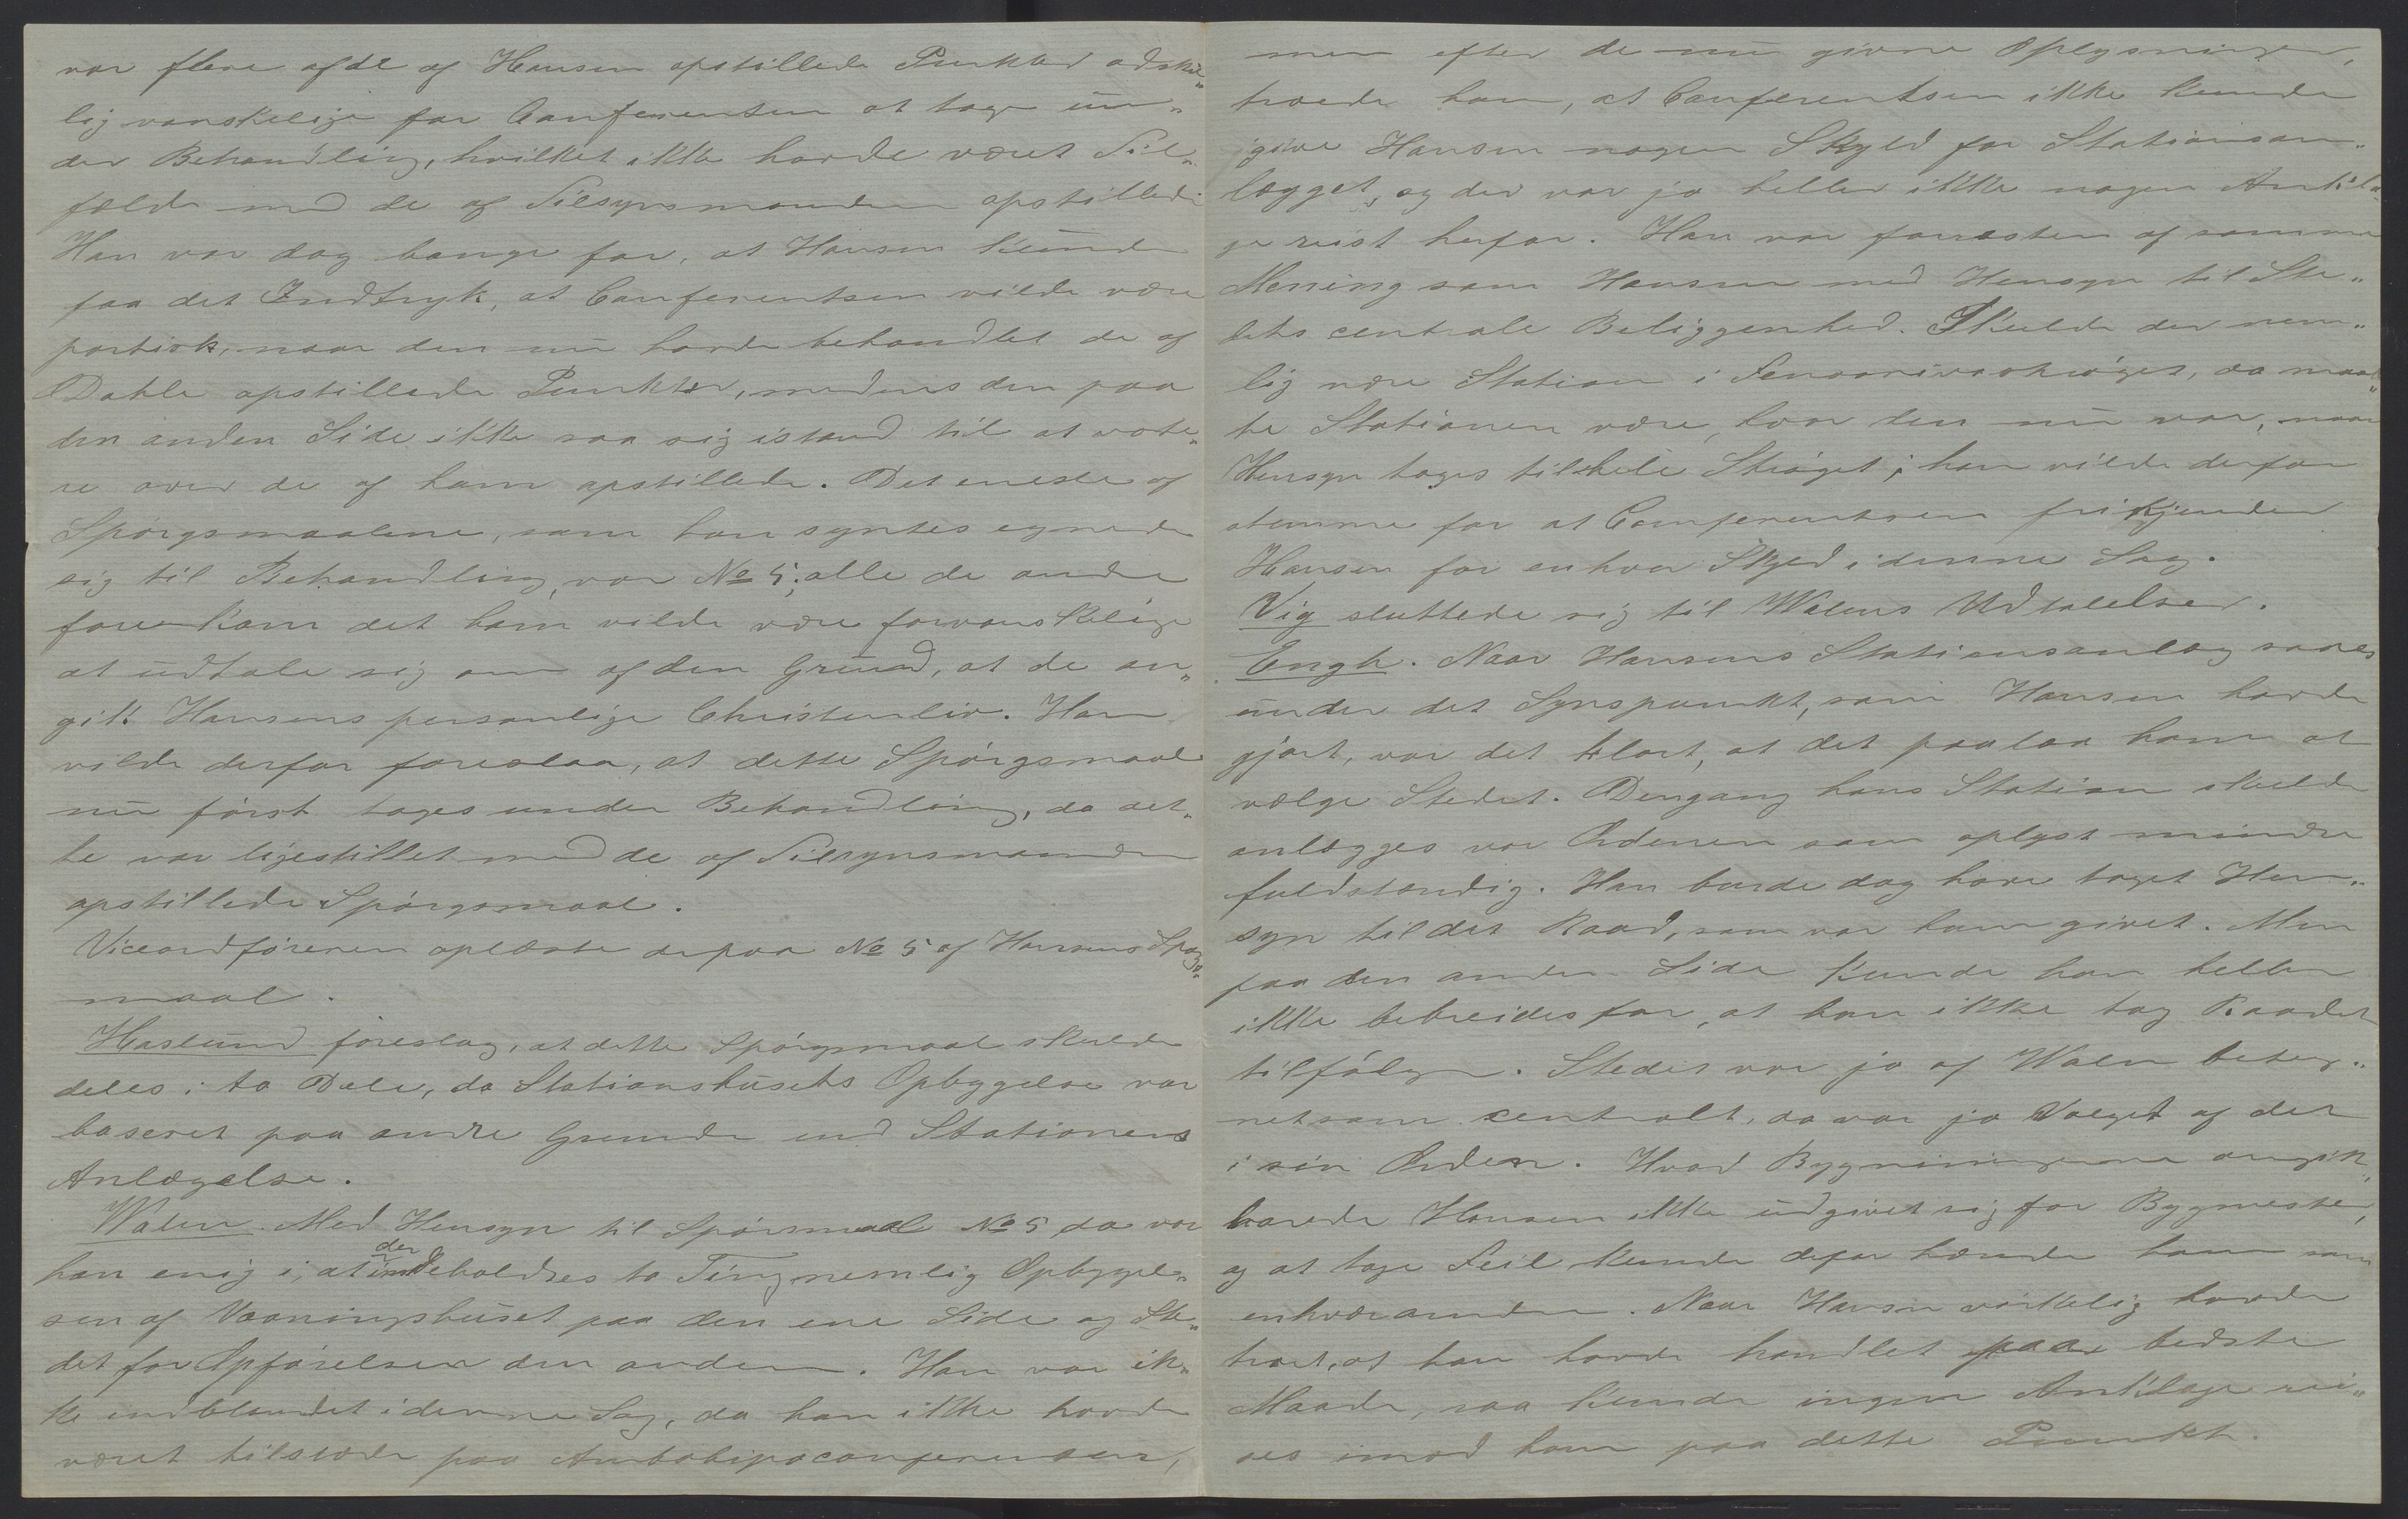 var flere af de af Hansen opstillede Punkter adskil„
lig vanskelige for Conferentsen at tage un„
der Behandling, hvilket ikke havde været Til„
fælde med de af Tilsynsmanden opstillede
Han var dog bange for, at Hansen kunde
faa det Indtryk, at Conferentsen vilde være
partisk, naar den nu havde behandlet de af
Dahle opstillede Punkter, medens den paa
den anden Side ikke saa sig istand til at vote„
re over de af ham opstillede. Det eneste af
Spørgsmaalene, som han syntes egnede
sig til Behandling, var No 5; alle de andre
forekom det ham vilde være forvanskelige
at udtale sig om af den Grund, at de an„
gik Hansens personlige Christenliv. Han
vilde derfor foreslaa, at dette Spørgsmaal
nu først toges under Behandling, da det„
te var ligestillet med de af Tilsynsmanden
opstillede Spørgsmaal.
Viceordføreren oplæste derpaa No 5 af Hansens Spørgs„
maal.
Haslund foreslog, at dette Spørgsmaal skulde
deles i to Dele, da Stationshusets Opbyggelse var
baseret paa andre Grunde end Stationens
Anlæggelse.
Walen. Med Hensyn til Spørsmaal No 5 da var
han enig i, at der indeholdtes to Ting nemlig Opbyggel„
sen af Vaaningshuset paa den ene Side og Ste„
det for Opførelsen den anden. Han var ik„
ke indblandet i denne Sag, da han ikke havde
været tilstede paa Ambohipoconferentsen,
men efter de nu givne Oplysninger,
troede han, at Conferentsen ikke kunde
give Hansen nogen Skyld for Stationsan„
lægget, og der var jo heller ikke nogen Ankla„
ge reist herfor. Han var forresten af samme
Mening som Hansen med Hensyn til Ste„
dets centrale Beliggenhed. Skulde der nem„
lig være Station i Fenoarivostrøget, da maat„
te Stationen være, hvor den nu var, naar
Hensyn toges til hele Strøget; han vilde derfor
stemme for at Conferentsen frikjender
Hansen for enhver Skyld i denne Sag.
Vig sluttede sig til Walens Udtalelser.
Engh. Naar Hansens Stationsanlæg saaes
under det Synspunkt, som Hansen havde
gjort, var det klart, at det paalaa ham at
vælge Stedet. Dengang hans Station skulde
anlægges var Ordenen som oplyst mindre
fuldstændig. Han burde dog have taget Hen„
syn til det Raad, som var ham givet. Men
paa den anden Side kunde han heller
ikke bebreides for, at han ikke tog Raadet
tilfølge. Stedet var jo af Walen beteg„
net som centralt, da var jo Valget af det
i sin Orden. Hvad Bygningerne angik,
havde Hansen ikke udgivet sig for Bygmester,
og at tage Feil kunde derfor hænde ham som
enhver anden. Naar Hansen virkelig havde
troet, at han havde handlet paa bedste
Maade, saa kunde ingen Anklage rei„
ses imod ham paa dette Punkt.